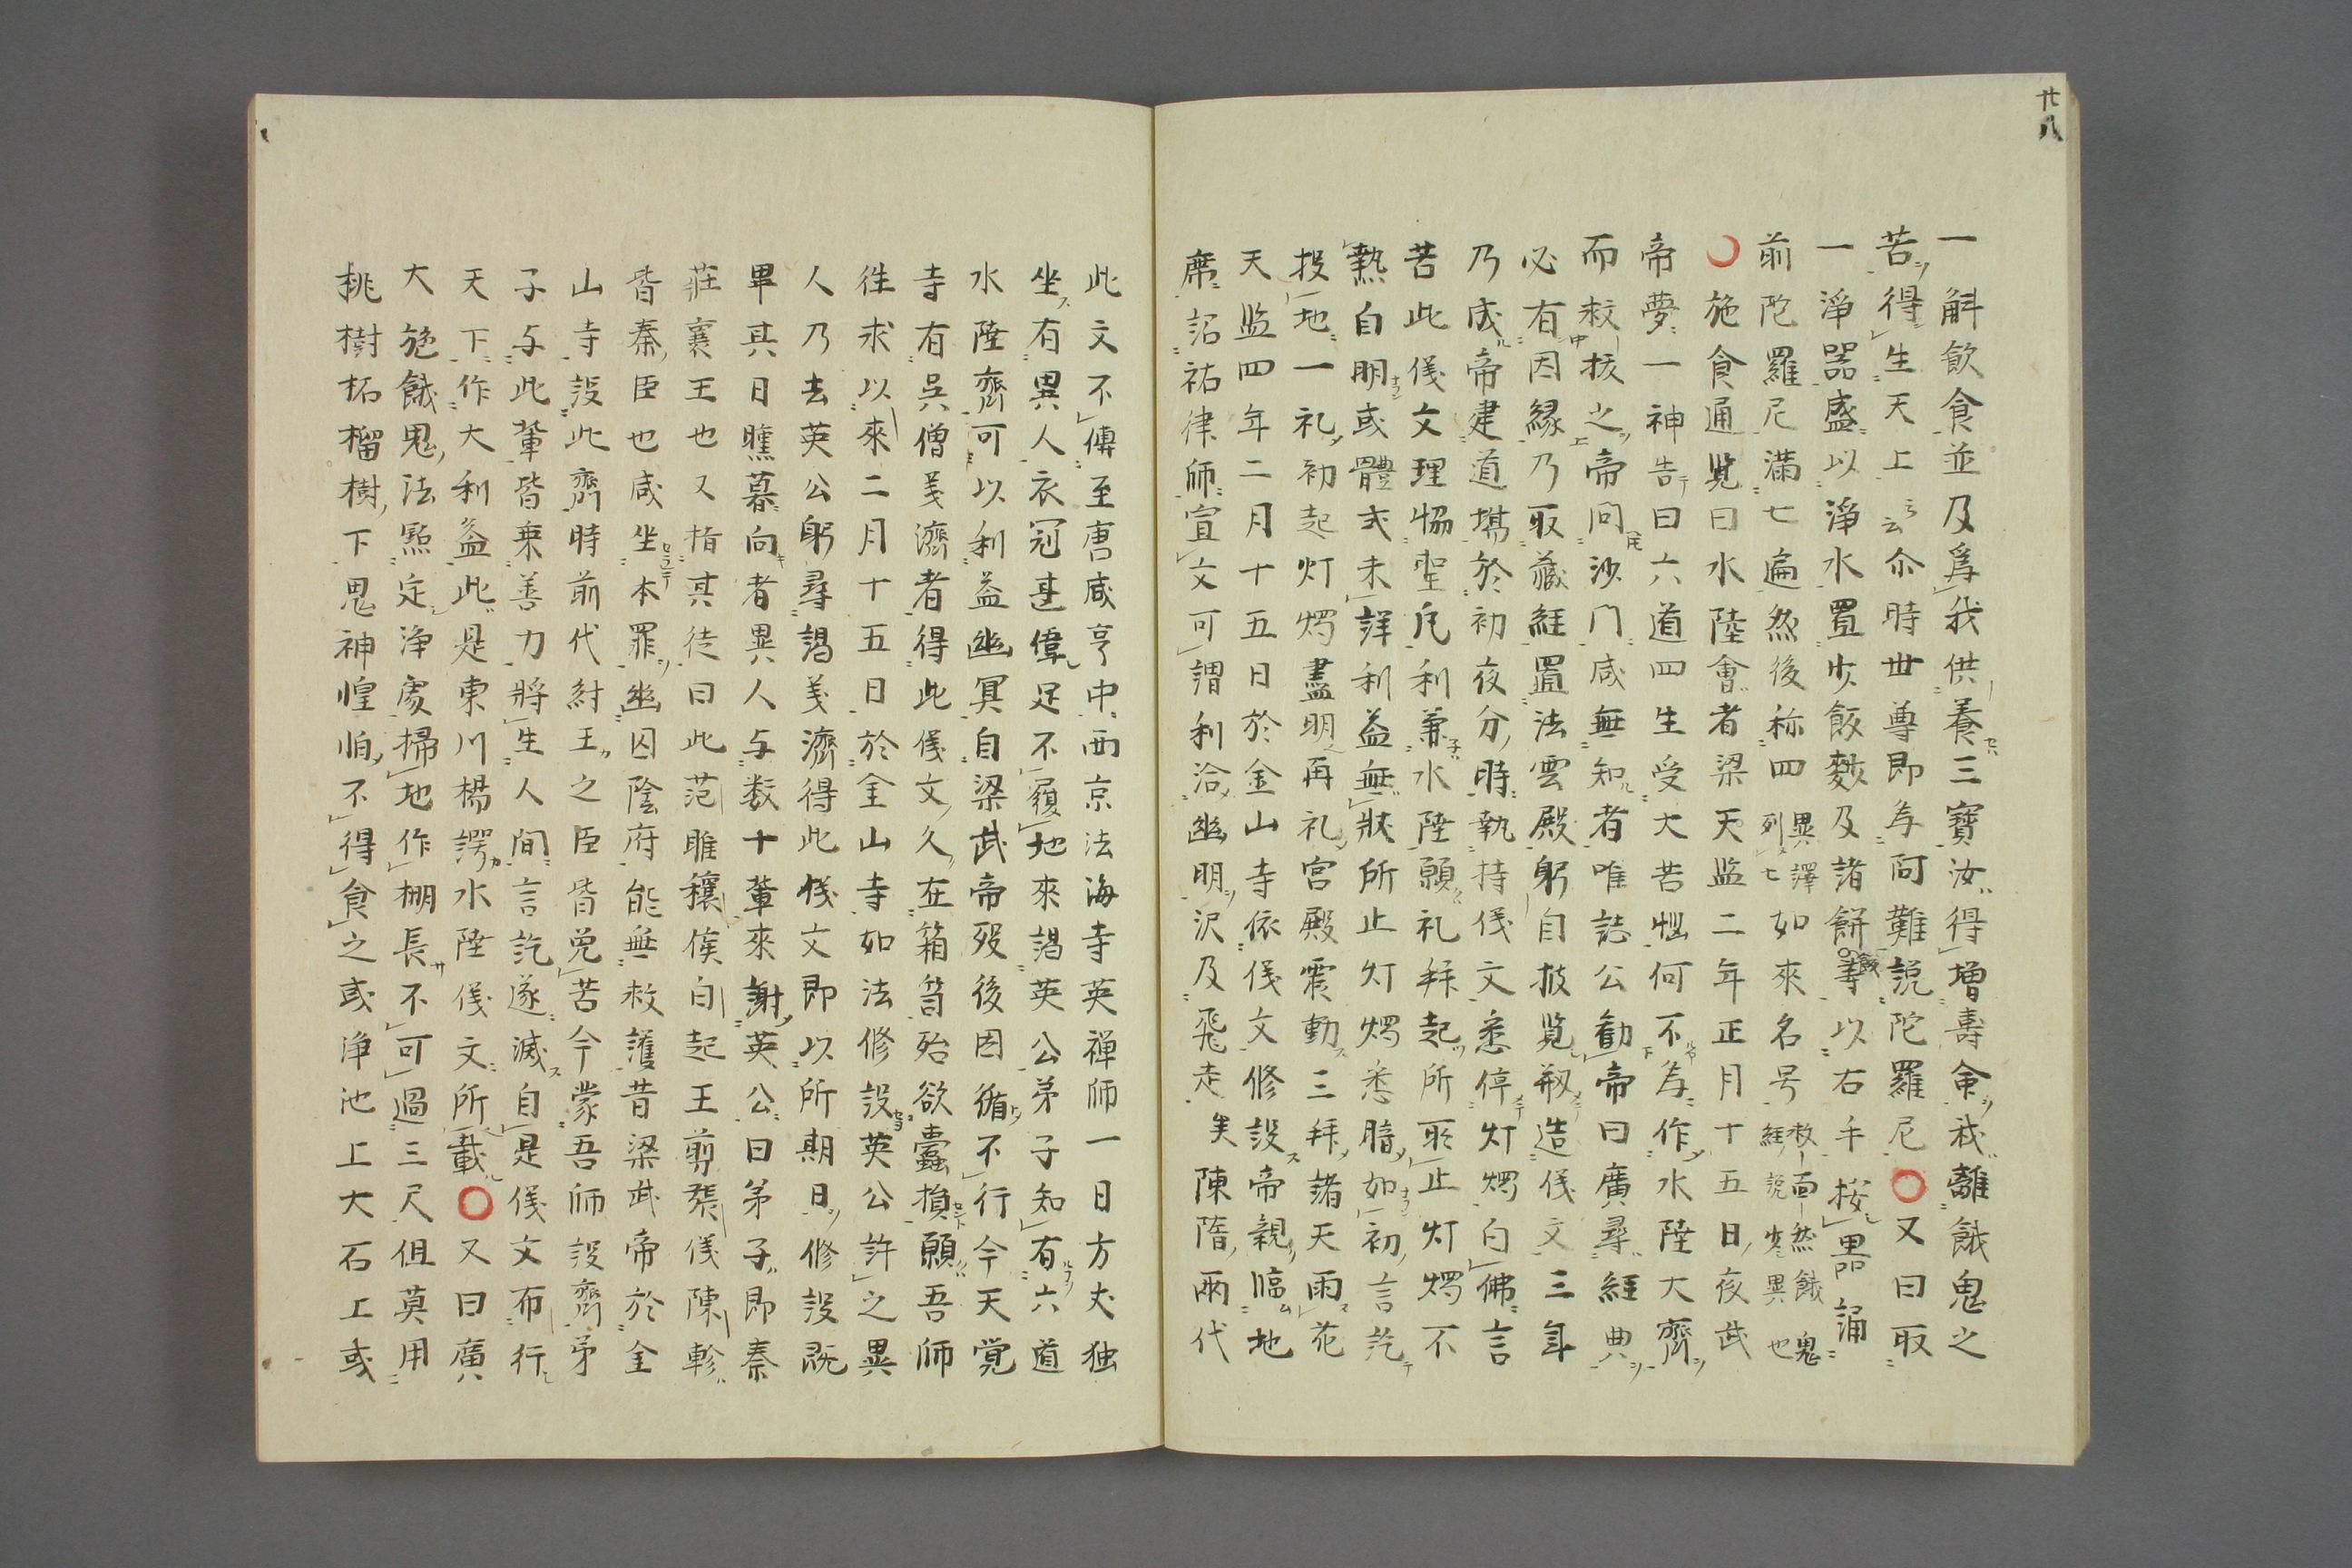 廿八
一斛飲食並及爲我供養三寶汝得增壽命我離餓鬼之
苦得生天上云云尒時世尊即为阿難説陀羅尼〇又曰取
一淨器盛以淨水置少飯麨及諸餅飯等以右手按器誦
前陀羅尼滿七遍然後称四異譯列七如來名号救面然餓鬼經説少異也
〇施食通覧曰水陸會者梁天监二年正月十五日夜武
帝夢一神告曰六道四生受大苦惱何不为作水陸大齊
而救拔之帝問沙門咸無知者唯誌公勸帝曰廣尋經典
必有因縁乃取藏經置法雲殿躬自披覧剏造儀文三年
乃成帝建道場於初夜分時執持儀文悉停灯燭白佛言
若此儀文理恊聖凡利兼水陸願礼拜起所取止灯燭不
熱自明或體式未詳利益無狀所止灯燭悉暗如初言訖
投地一礼初起灯燭盡明再礼宮殿震動三拜諸天雨花
天监四年二月十五日於金山寺依儀文修設帝親臨地
席詔祐律師宣文可謂利洽幽明沢及飛走矣陳隋兩代
此文不傳至唐咸亨中西京法海寺英禅師一日方丈独
坐有異人衣冠甚偉足不履地來謁英公弟子知有六道
水陸齊可以利益幽冥自梁武帝歿後因循不行今天覚
寺有吳僧義濟者得此儀文久在箱笥殆欲蠹損願吾師
徃求以來二月十五日於金山寺如法修設英公許之異
人乃去英公躬尋謁義濟得此儀文即以所期日修設既
畢其日曛暮向者異人与数十輩來謝英公曰弟子即秦
莊襄王也又指其徒曰此范雎穰侯白起王翦張儀陳軫
皆秦臣也咸坐本罪幽囚陰府能無救護昔梁武帝於金
山寺設此齊時前代紂王之臣皆免苦今蒙吾師設齊弟
子与此輩皆乗善力將生人間言訖遂滅自是儀文布行
天下作大利益此是東川楊諤水陸儀文所載〇又曰廣
大施餓鬼法㸃定淨處掃地作棚長不可過三尺但莫用
桃樹柘榴樹下鬼神惶怕不得食之或淨池上大石上或